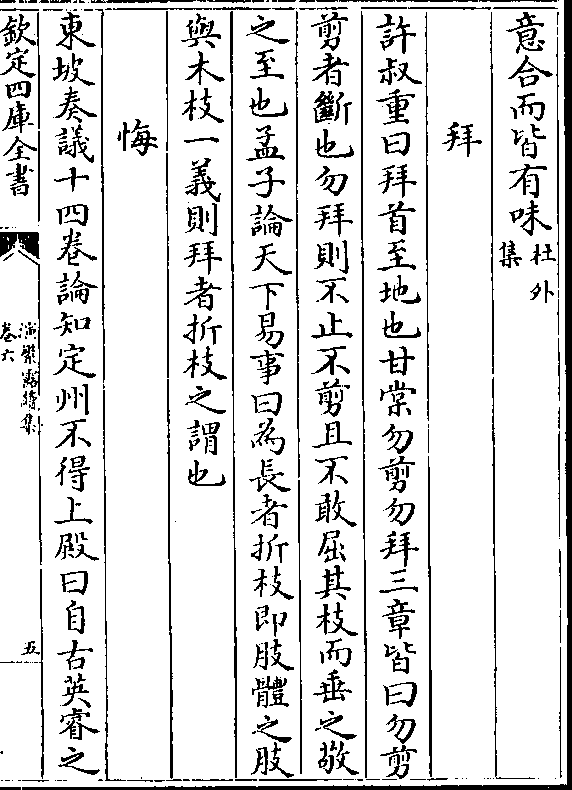 意合而皆有味杜外集
拜
許叔重曰拜首至地也甘棠勿剪勿拜三章皆曰勿剪
剪者斷也勿拜則不止不剪且不敢屈其枝而垂之敬
之至也孟子論天下易事曰為長者折枝即肢體之肢
與木枝一義則拜者折枝之謂也
悔
東坡奏議十四卷論知定州不得上殿曰自古英睿之
欽定四庫全書
演繁露續集
卷六
五